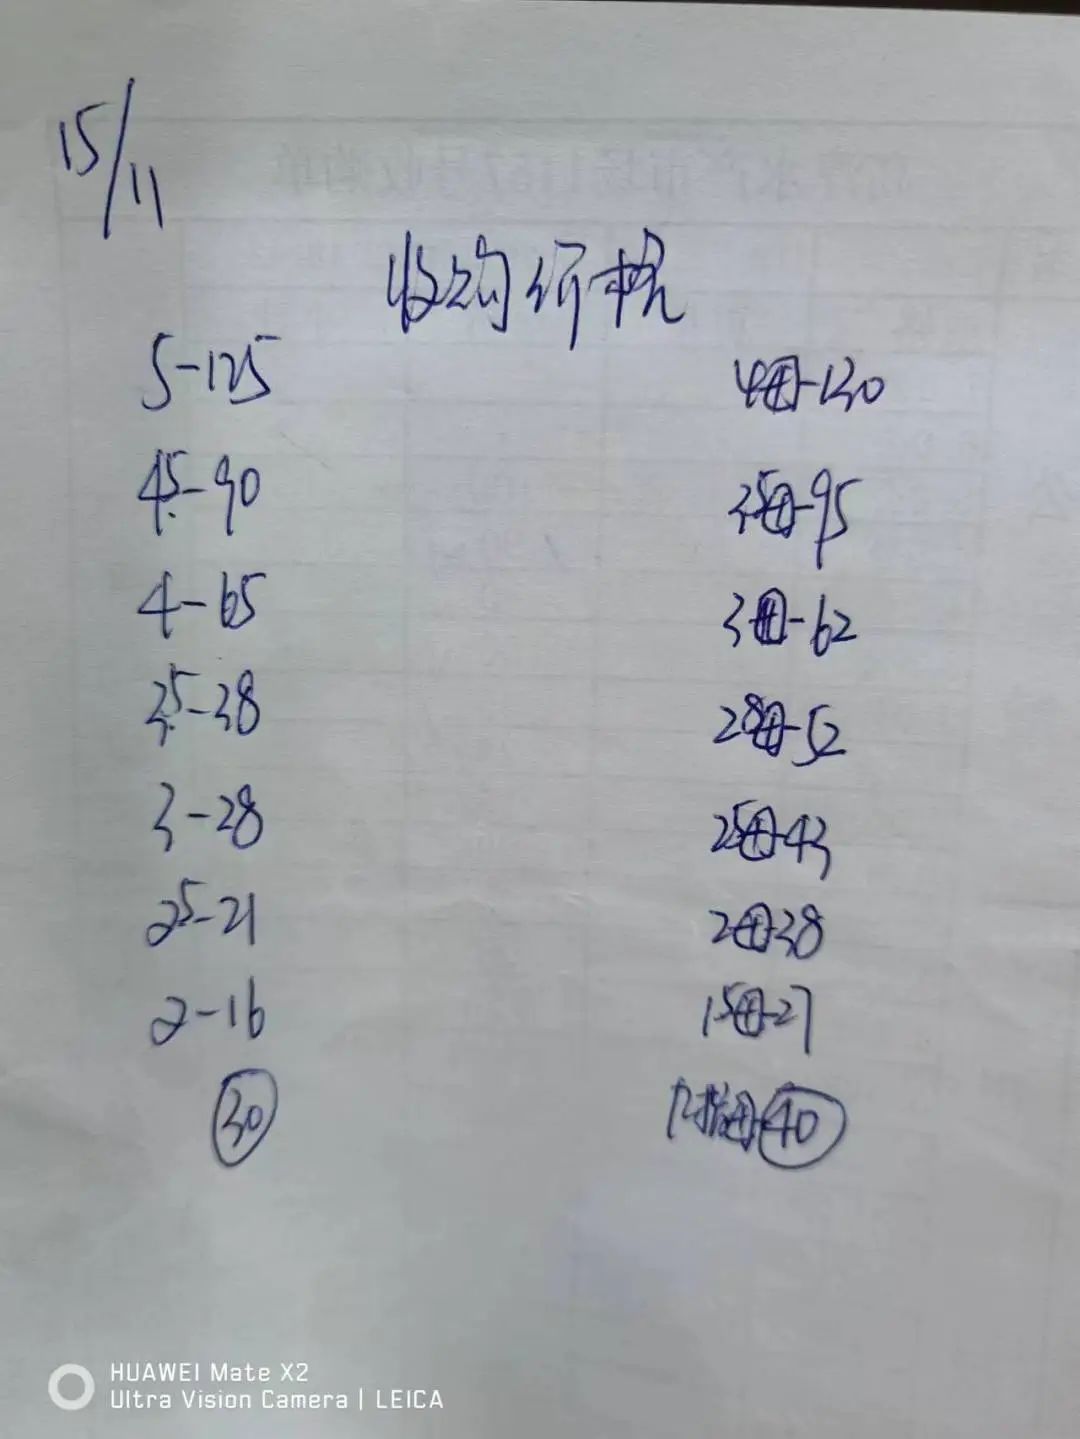 15/11
收购价格
5-125
4母-130
4.5-90
3.5母-95
4-65
3母-62
3.5-38
28母-52
3-28
25母-43
25-21
2母-38
2-16
15母-27
30
母-40
HUAWEI Mate X2
Ultra Vision Camera | LEICA